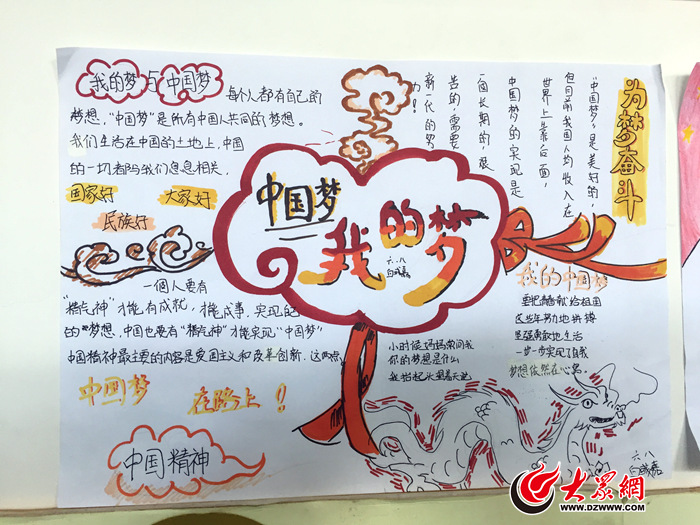 我的梦与中国梦
每个人都有自己的
梦想，“中国梦”是所有中国人共同的梦想。
我们生活在中国的土地上，中国
的一切都与我们息息相关。
国家好
大家好
民族好
一个人要有
“精气神”才能有成就，才能成事，实现自己
的“梦想，中国也要有“精气神”才能实现“中国梦”
中国精神最主要的内容是爱国主义和改革创新．这两点
中国梦
在路上！
中国精神
中国梦
我的梦
六·八
为梦奋斗
“中国梦”是美好的，
但目前我国人均收入在
世界上靠后面，
中国梦的实现是
一个长期的，艰
苦的，需要
新一代的努
力！
我的中国梦
要把青春献给祖国
这些年努力地拼搏
坚强勇敢地生活
一步一步实现了自我
梦想依然在心窝。
小时候妈妈常问我
你的梦想是什么
六·八
大眾網
WWW.DZWWW.COM